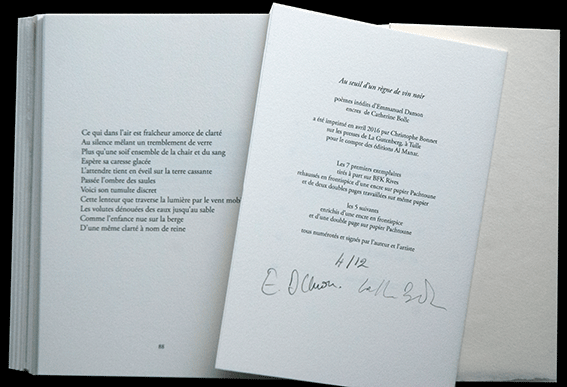 Ce qui dans l'air est fraîcheur amorce de clarté
Au silence mêlant un tremblement de verre
Plus qu'une soif ensemble de la chair et du sang
Espère sa caresse glacée
L'attendre tient en éveil sur la terre cassante
Passée l'ombre des saules
Voici son tumulte discret
Cette lenteur que traverse la lumière par le vent
Les volutes dénouées des eaux jusqu'au sable
Comme l'enfance nue sur la berge
D'une même clarté à nom de reine
88
Au seuil d'un règne de vin noir
poèmes inédits d'Emmanuel Damon
encres de Catherine Bolle
a été imprimé en avril 2016 par Christophe Bonnet
sur les presses de La Gutenberg, à Tulle
pour le compte des éditions Al Manar.
Les 7 premiers exemplaires
tirés à part sur BFK Rives
rehaussés en frontispice d'une encre sur papier Pachtoune
et de deux doubles pages travaillées sur même papier
les 5 suivants
enrichis d'une encre en frontispice
et d'une double page sur papier Pachtoune
tous numérotés et signés par l'auteur et l'artiste
4/12